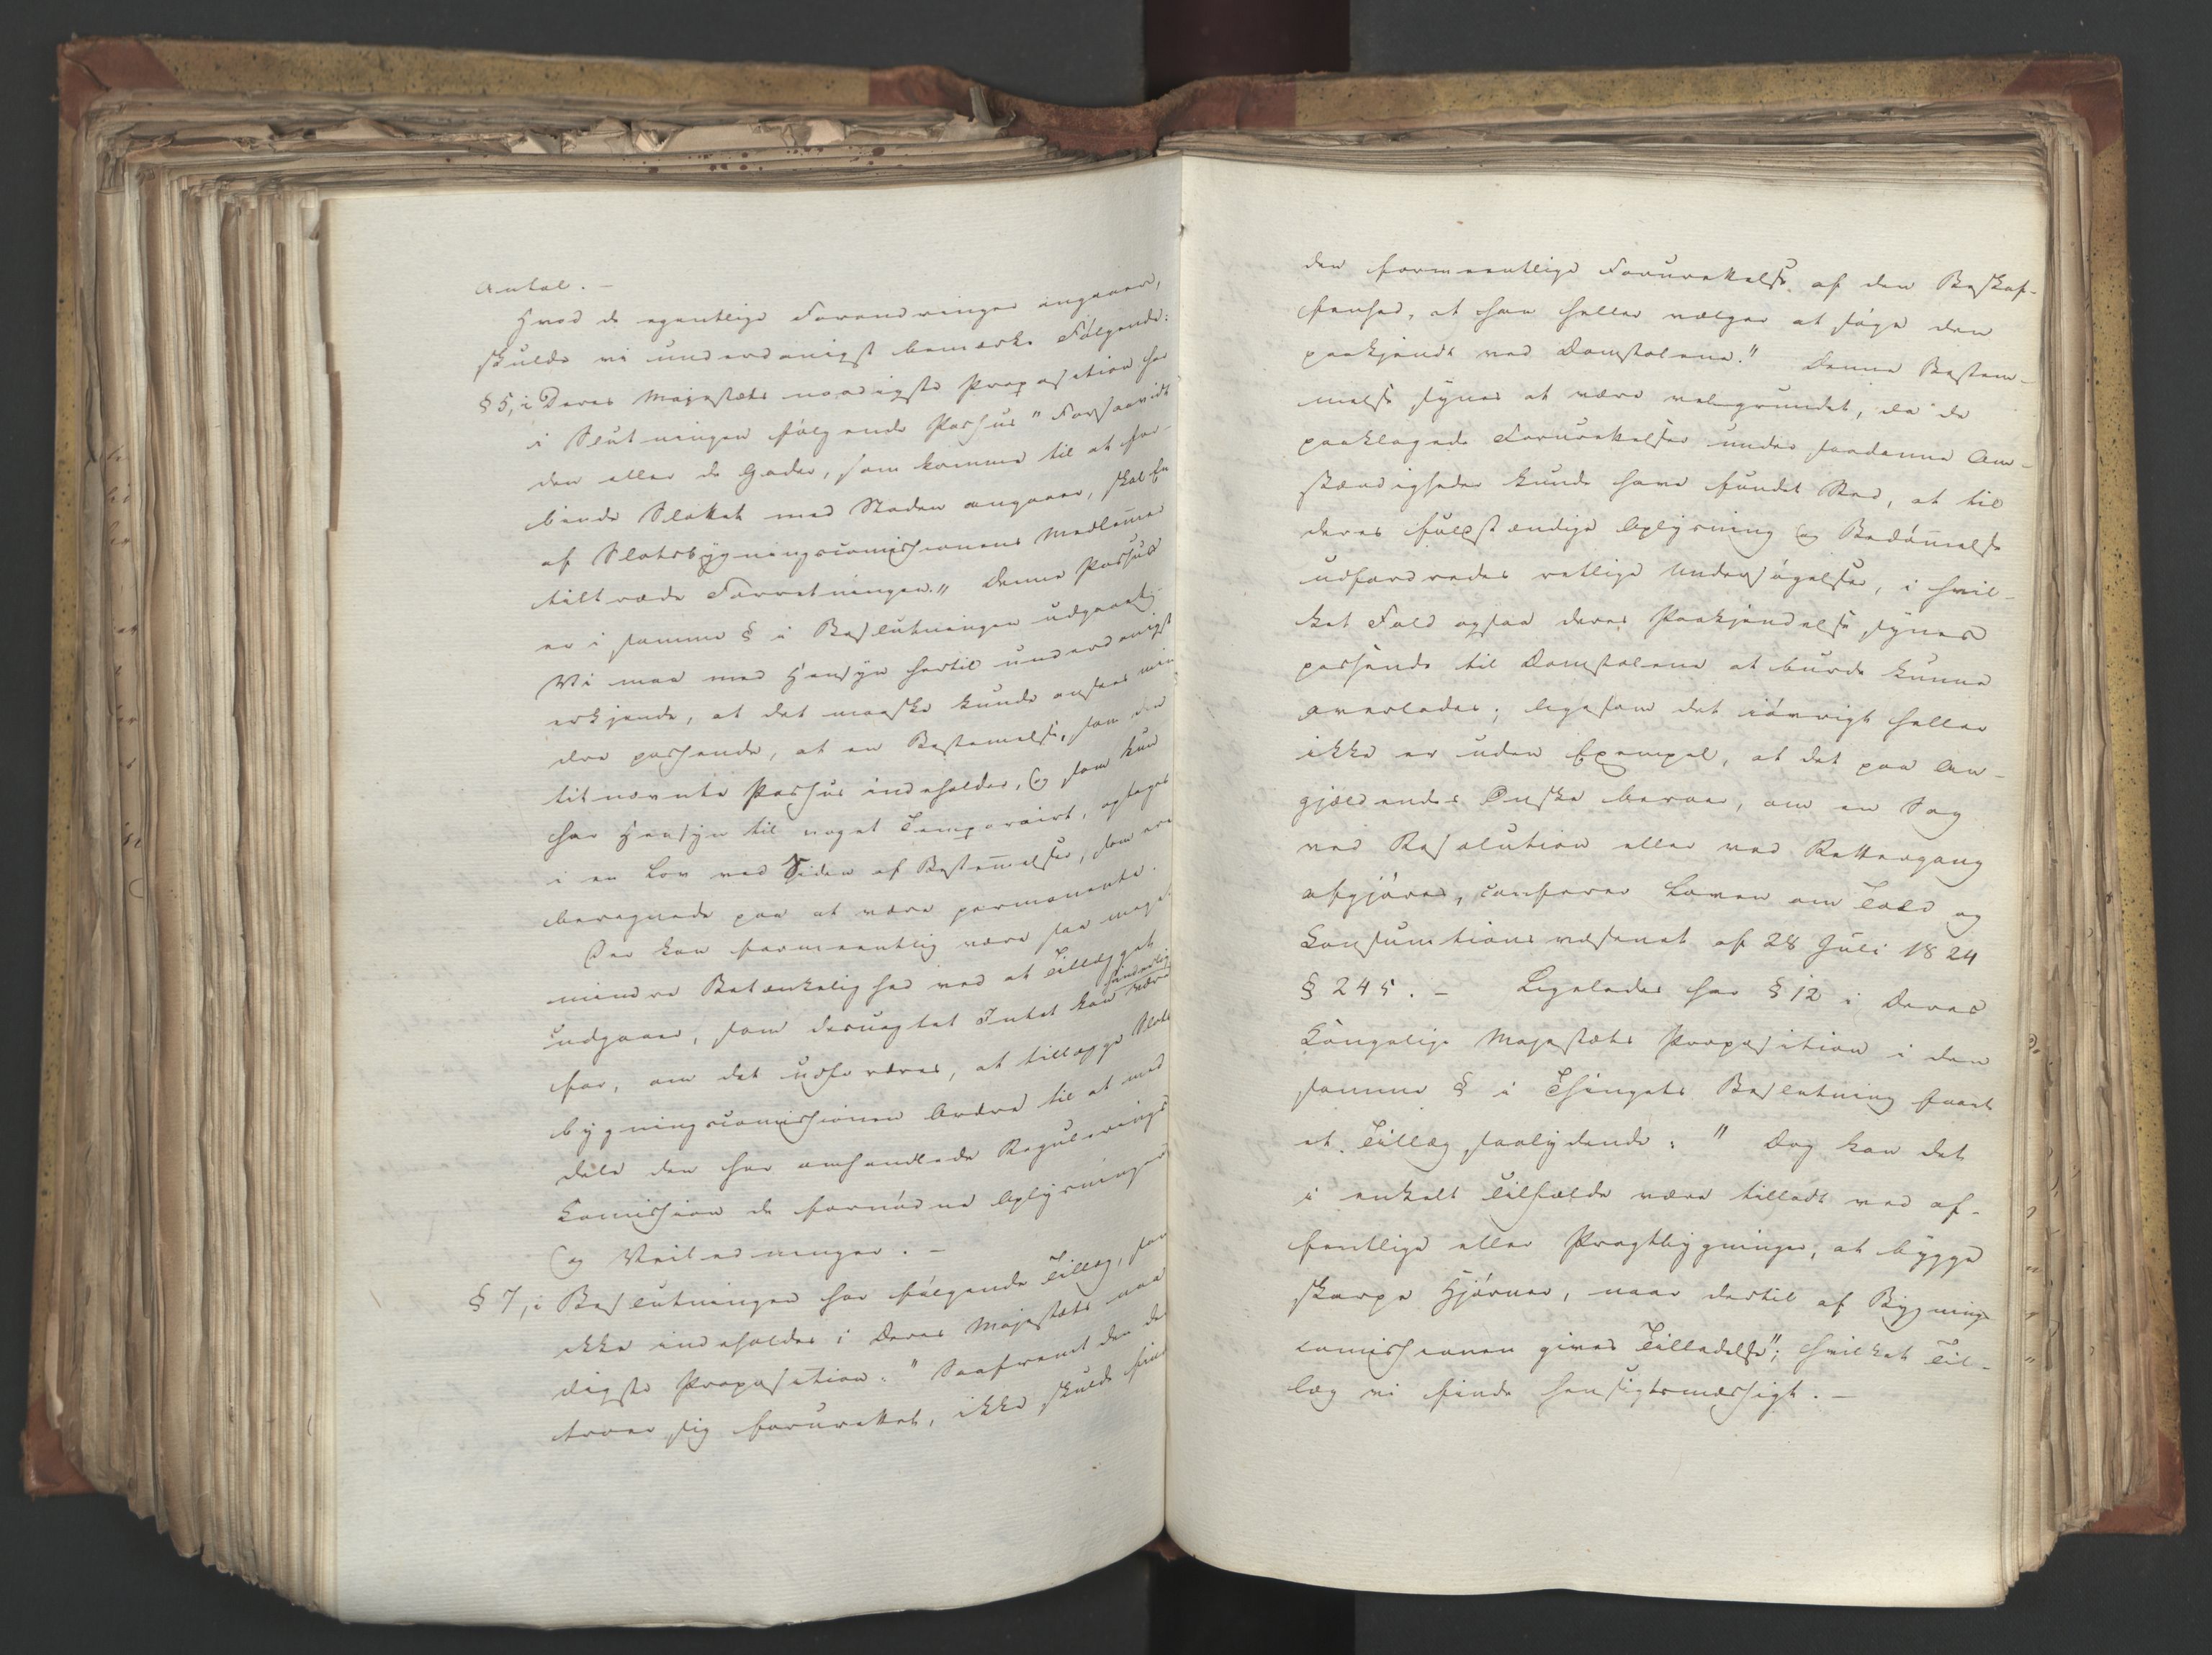 Antal. –
Hvad de egentlige Forandringer angaaer,
skulde vi underdanigst bemærke Følgende:
§ 5, i Deres Majestæts naadigste Proposition har
i Slutningen følgende Passus "Forsaavidt
den eller de Gader, som komme til at for-
binde Slottet med Staden angaaer, skal En
af Slotsbygningscommissionens Medlemmer
tiltræde Forretningen." Denne Passus
er i samme § i Beslutningen udgaaet.
Vi maa med Hensyn hertil underdanigst
erkjende, at det maaske kunde ansees min
dre passende, at en Bestemmelse, som den
titnævnte Passus indeholder, og som kun
har Hensyn til noget Temporairt, optages
i en Lov ved Siden af Bestemmelser, som ere
beregnede paa at være permanente.
Der kan formeentlig være saa meget
mindre Betænkelighed ved at Tillægget
udgaaer, som desuagtet Intet kan være
hinderlig
for, om det udfordres, at tillægge Slots
bygningscommissionen Ordre til at med
dele den her omhandlede Regulerings
Commission de fornødne Oplysninger
og Veiledninger. –
§ 7, i Beslutningen har følgende Tillæg, som
ikke indeholdes i Deres Majestæts naa
digste Proposition: "Saafremt den der
troer sig forurettet, ikke skulde finde
den formeentlige Forurettelse af den Beskaf-
fenhed, at han heller vælger at søge den
paakjendt ved Domstolene." Denne Bestem-
melse synes at være velgrundet, da de
paaklagede Forurettelser under saadanne Om-
stændigheder kunde have fundet Sted, at til
deres fuldstændige Oplysning og Bedømmelse
udfordredes retlige Undersøgelser, i hvil-
ket Fald ogsaa deres Paakjendelse synes
passende til Domstolene at burde kunne
overlades; ligesom det iøvrigt heller
ikke er uden Exempel, at det paa An-
gjældendes Ønske beroer, om en Sag
ved Resolution eller ved Rettergang
afgjøres, conferer Loven om Told og
Consumtionsvæsenet af 28 Juli 1824
§ 245. – Ligeledes har § 12 i Deres
Kongelige Majestæts Proposition i den
samme § i Thingets Beslutning faaet
et Tillæg saalydende: "Dog kan det
i enkelt Tilfælde være tilladt ved of-
fentlige eller Pragtbygninger, at bygge
skarpe Hjørner, naar dertil af Bygnings
commissionen gives Tilladelse"; hvilket Til-
læg vi finde hensigtsmæssigt. –